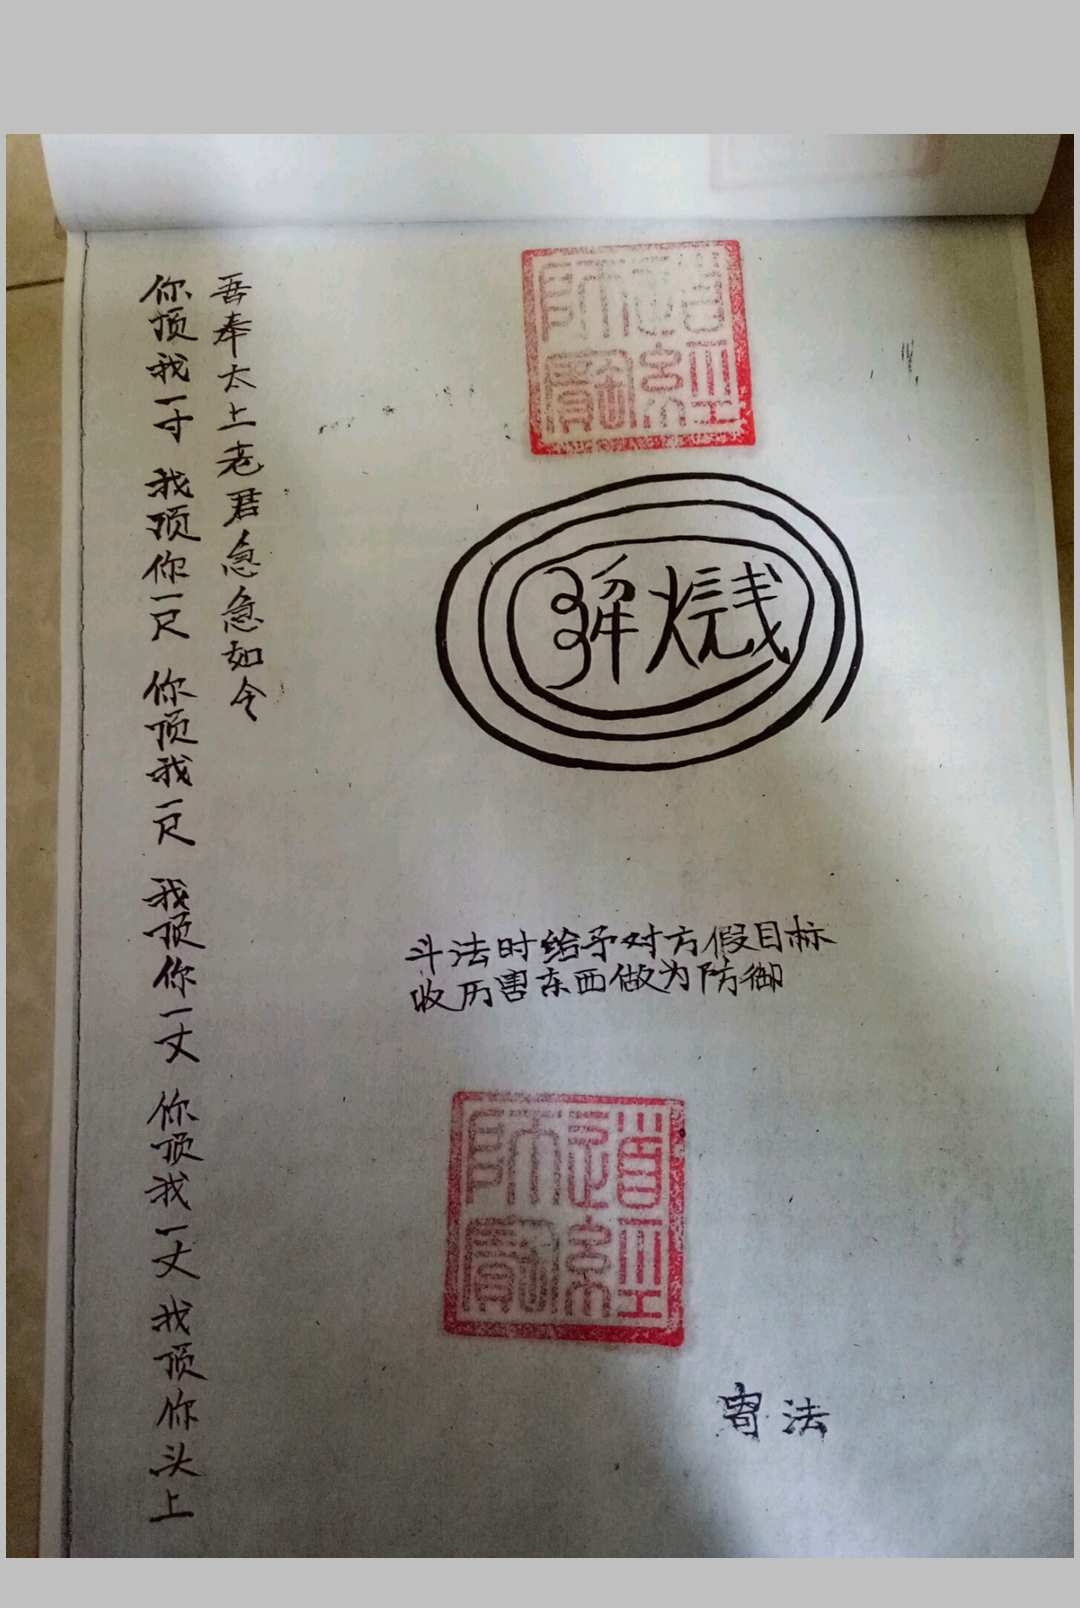 道經師寶
斗法时给予对方假目标
收历害东西做为防御
道經師寶
寄法
你顶我一寸 我顶你一尺 你顶我一尺 我顶你一丈 你顶我一丈 我顶你头上
吾奉太上老君急急如令